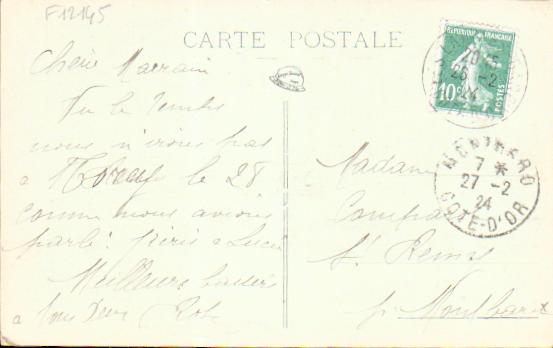 F12145
CARTE POSTALE
REPUBLIQUE FRANÇAISE
10c
POSTES
26 -2
MONTBARD
7 *
27 -2
24
COTE-D'OR
Chère Marraine
Vu le temps
nous n'irons pas
à le 28
comme nous avions
parlé. à Lucie
Meilleurs baisers
à tous deux
Madame
St Remy
Montbard